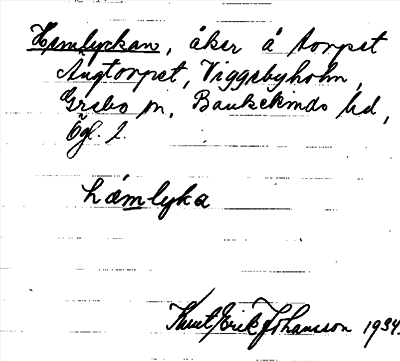 Hemlyckan, åker å torpet
Augtorpet, Viggebyholm,
Grebo sn, Bankekinds hd,
Ögl. l.
hémlyka
Knut Erik Johansson 1934.